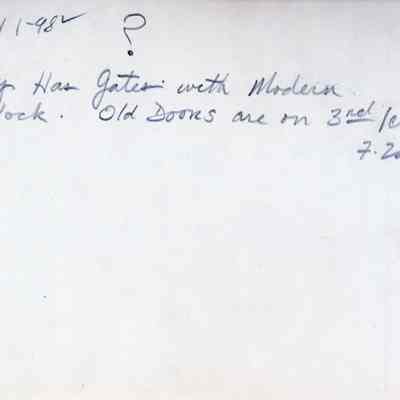 1-98 ?
Has Gates with Modern
lock. Old Doors are on 3rd /c
7.20